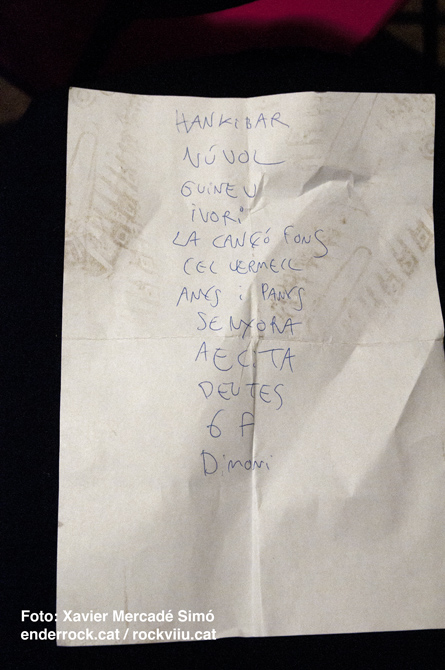 HANKIBAR
NÚVOL
GUINEU
IVORI
LA CANÇÓ FONS
CEL VERMELL
ANYS i PANYS
SENYORA
AECITA
DEUTES
6 A
Dimoni
Foto: Xavier Mercadé Simó
enderrock.cat / rockviiu.cat